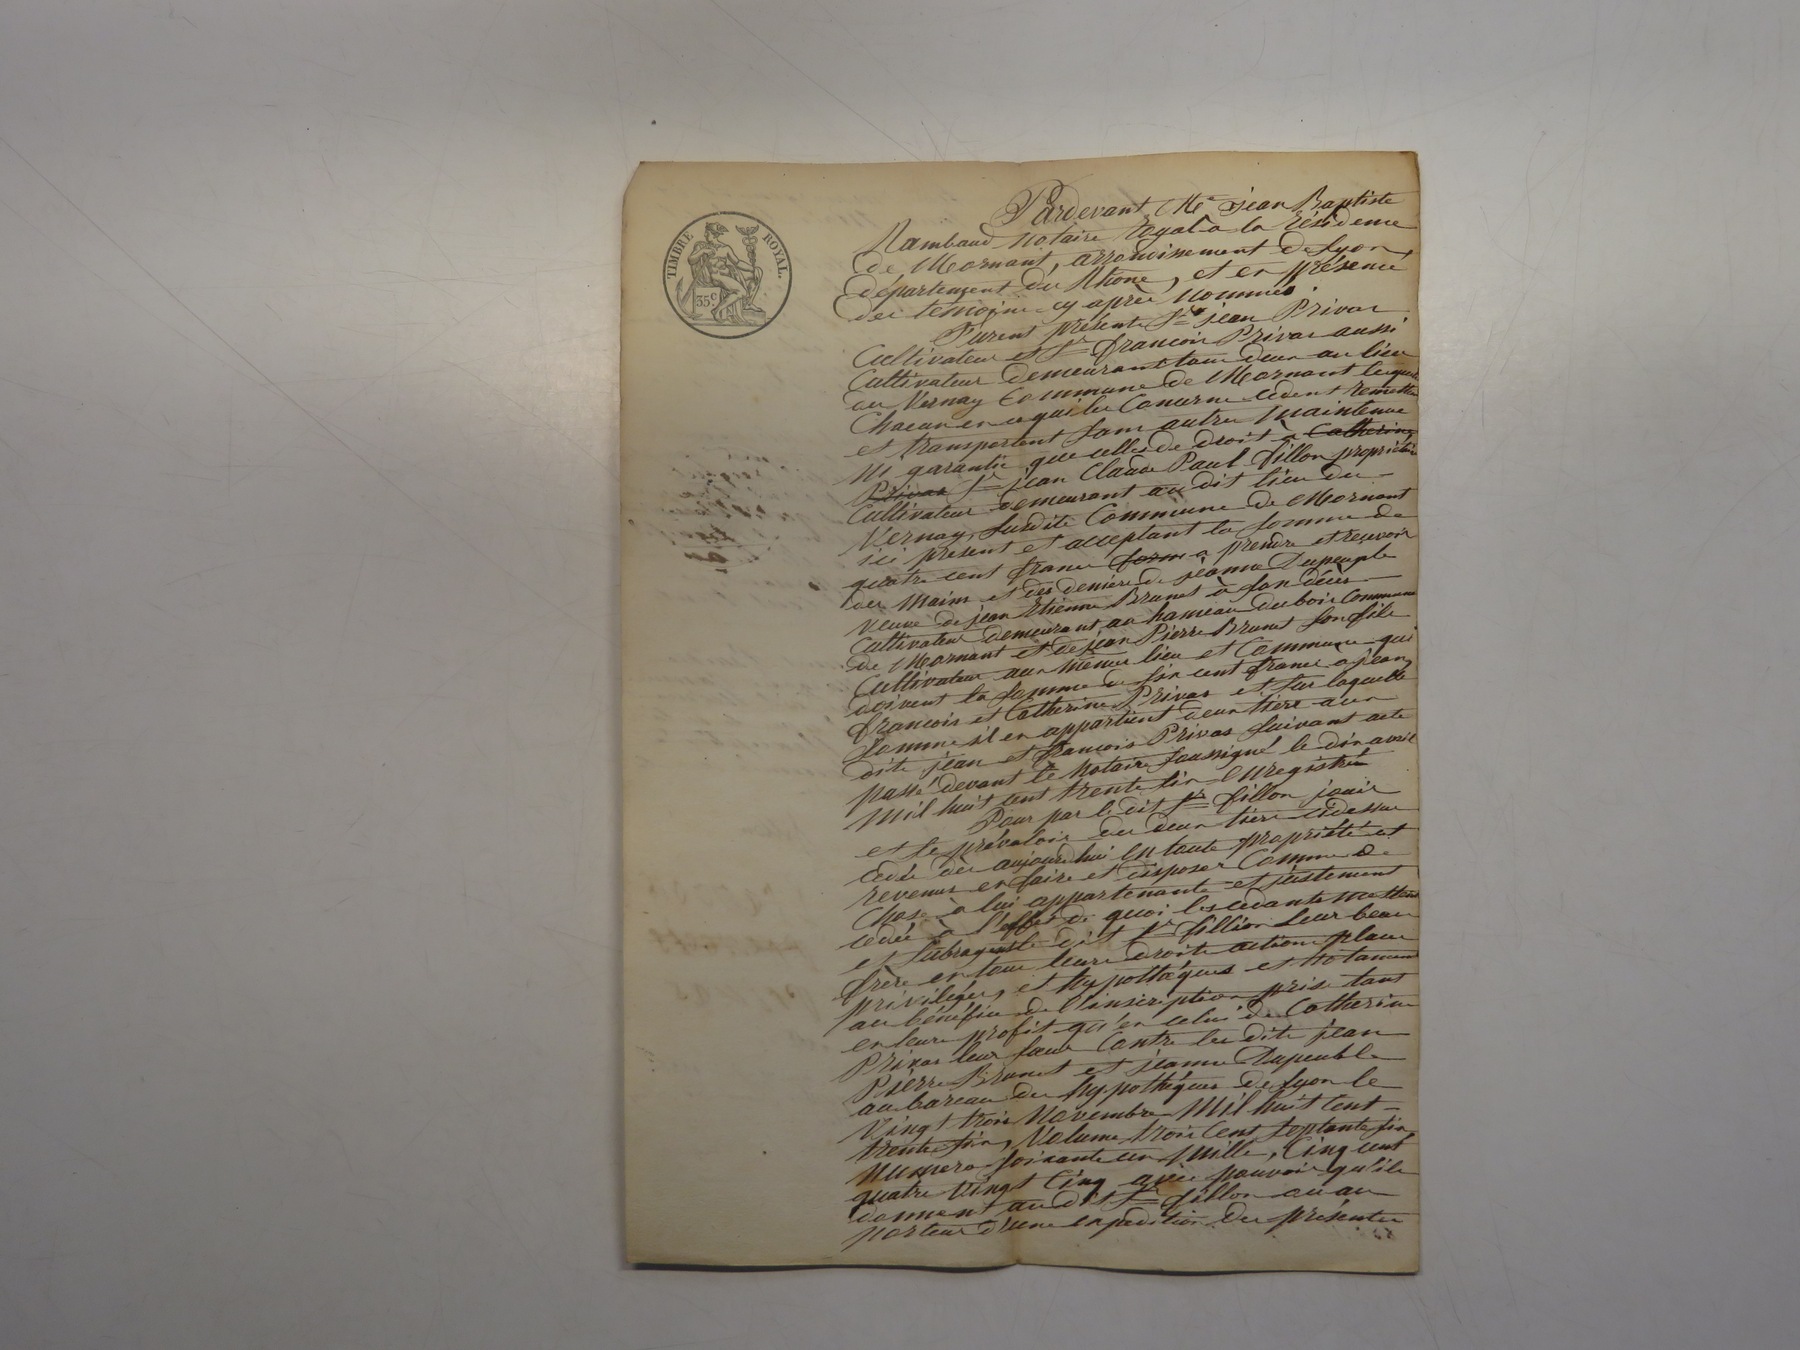 TIMBRE ROYAL.
35c
Pardevant Me jean Baptiste
Rambaud Notaire Royal a la Résidence
de Mornant, arrondissement de Lyon
département du Rhône, et en présence
des temoins cy après Nommés
Furent présents Sr jean Privas
Cultivateur et Sr françois Privas aussi
Cultivateur demeurant tous deux au lieu
du Vernay Commune de Mornant lesquels
Chacun en ce qui les Concerne cèdent remettent
et transportent sans autre Maintenue
Ni garantie que celles de droit a Catherine
Privas Sr jean Claude Paul fillon propriétaire
Cultivateur demeurant au dit lieu du
Vernay, Susdite Commune de Mornant
ici présent et acceptant la Somme de
quatre cent francs a prendre et recevoir
des Mains et des deniers de jeanne Dupeuple
Veuve de jean Etienne Brunet à son décès
Cultivateur demeurant au hameau du bois Commune
de Mornant et de jean Pierre Brunet Son fils
Cultivateur aux Mêmes lieu et Commune qui
doivent la Somme de six cent francs a jean
françois et Catherine Privas et Sur laquelle
Somme il en appartient deux tiers aux
dits jean et françois Privas Suivant acte
passé devant le Notaire Soussigné le dix avril
Mil huit cent trente six Enregistré
Pour par le dit Sr fillon jouir
et Se prévaloir des deux tiers cidessus
cédé dès aujourd'hui en toute propriété et
revenus en faire et disposer Comme de
Chose à lui appartenante et justement
cédée a l'effet de quoi les cédants mettent
et Subrogent le dit Sr fillion Leur beau
frère en tous leurs droits actions place
privilèges, et hypothéques et Notament
au bénéfice de l'inscription prise tant
en leurs profit qu'en celui de Catherine
Privas leur Sœur Contre les dits jean
Pierre Brunet et jeanne Dupeuble
au bureau des hypothéques de Lyon le
Vingt trois Novembre Mil huit cent
trente six, Volume trois Cent Septante six
Numero Soixante un Mille, Cinq cent
quatre Vingt Cinq avec pouvoir qu'ils
donnent au dit Sr fillon ou au
porteur d'une expédition des présentes